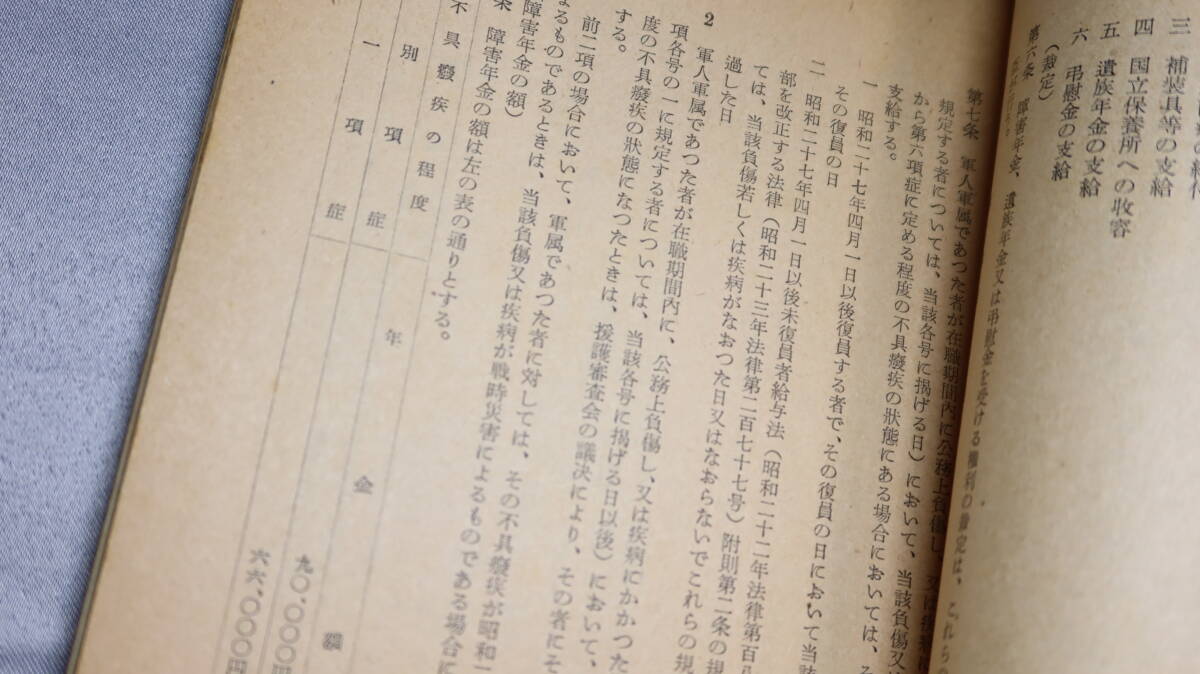 三　補装具等の支給
四　国立保養所への収容
五　遺族年金の支給
六　弔慰金の支給
（裁定）
第六条　障害年金、遺族年金又は弔慰金を受ける権利の裁定は、これらの
第七条　軍人軍属であつた者が在職期間内に公務上負傷し、又は疾病
規定する者については、当該各号に掲げる日）において、当該負傷又
から第六項症に定める程度の不具癈疾の狀態にある場合においては、そ
支給する。
一　昭和二十七年四月一日以後復員する者で、その復員の日において当該
その復員の日
二　昭和二十七年四月一日以後未復員者給与法（昭和二十二年法律第百八
部を改正する法律（昭和二十三年法律第二百七十七号）附則第二条の規
ては、当該負傷若しくは疾病がなおつた日又はなおらないでこれらの規
過した日
2　軍人軍属であつた者が在職期間內に、公務上負傷し、又は疾病にかかつた
項各号の一に規定する者については、当該各号に掲げる日以後）において、
度の不具癈疾の狀態になつたときは、援護審査会の議決により、その者にそ
する。
前二項の場合において、軍属であつた者に対しては、その不具癈疾が昭和二
よるものであるときは、当該負傷又は疾病が戦時災害によるものである場合に
障害年金の額）
条　障害年金の額は左の表の通りとする。
不具癈疾の程度
別項症　年金額
一項症　九〇、〇〇〇円
六六、〇〇〇円